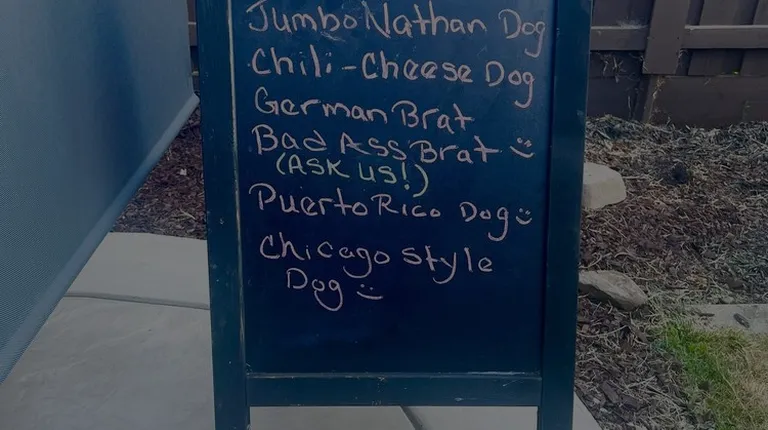 Jumbo Nathan Dog
Chili-Cheese Dog
German Brat
Bad Ass Brat :)
(ASK US!)
Puerto Rico Dog :)
Chicago Style
Dog :)